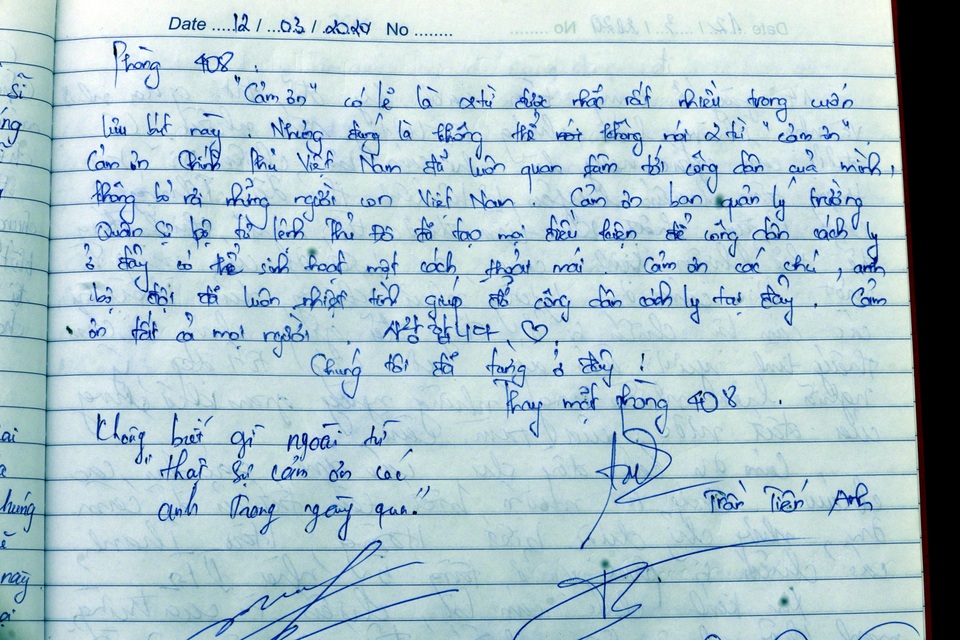 Date .....12 / ...03 / .2020 No ........
Phòng 408.
"Cảm ơn" có lẽ là từ được nhắc rất nhiều trong cuốn
lưu bút này. Nhưng đúng là không thể không nói 2 từ "cảm ơn".
Cảm ơn Chính Phủ Việt Nam đã luôn quan tâm tới công dân của mình,
không bỏ rơi những người con Việt Nam. Cảm ơn ban quản lý trường
Quân sự bộ tư lệnh Thủ Đô đã tạo mọi điều kiện để công dân cách ly
ở đây có thể sinh hoạt một cách thoải mái. Cảm ơn các chú, anh
bộ đội đã luôn nhiệt tình giúp đỡ công dân cách ly tại đây. Cảm
ơn tất cả mọi người. 사랑합니다 ♡.
Chúng tôi đã từng ở đây!
Thay mặt phòng 408.
Không biết gì ngoài từ
"thật sự cảm ơn các
anh Trong ngày qua."
Trần Tiến Anh